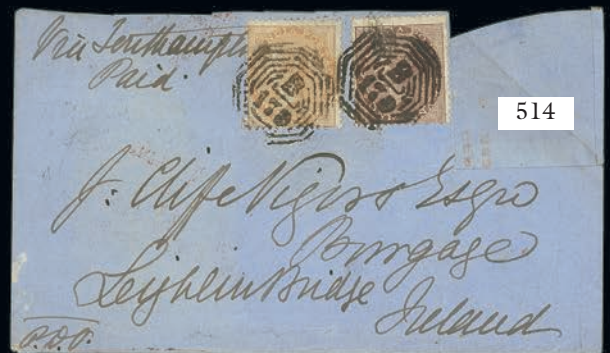 Via Southampton
Paid.
B
172
B
172
514
J. Cliffe Vigors Esqre
Burgage
Leighlin Bridge
Ireland
P.D.O.